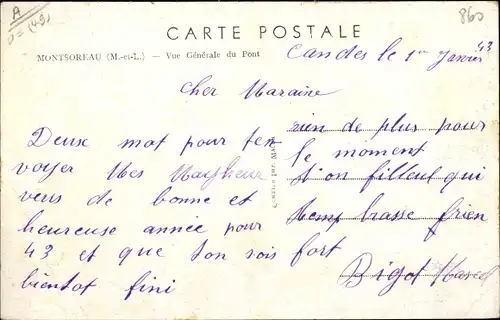 A
(49)
860
CARTE POSTALE
MONTSOREAU (M.-et-L.) — Vue Générale du Pont
Candes le 1er Janvier 43
Cher Maraine
Deux mot pour ten
voyer Mes Meyheur
veus de bonne et
heureuse année pour
43 et que ton sois
bientot fini
rien de plus pour
le moment
Ton filleul qui
temp brasse frien
fort
Bigot Marcel